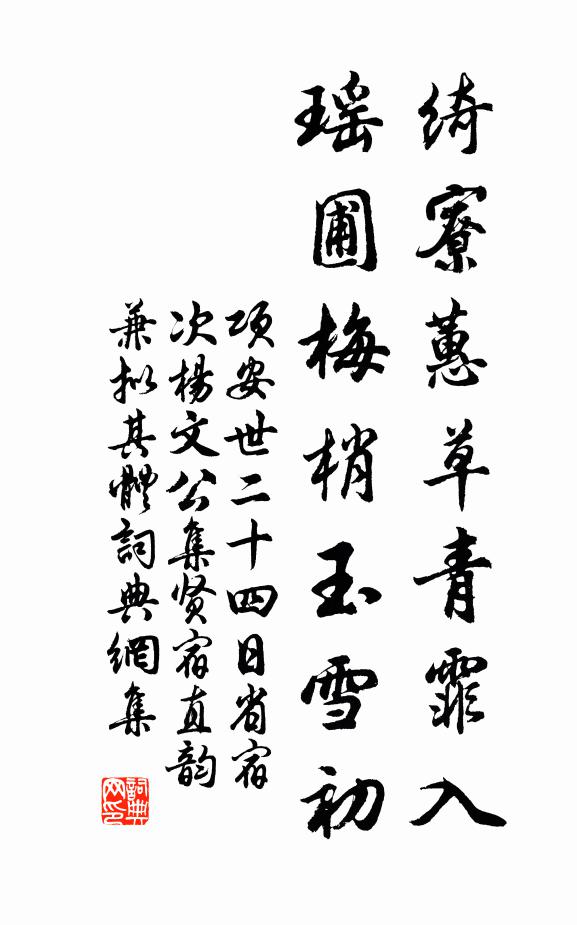 绮寮蕙草青霏入
瑶圃梅梢玉雪初
项安世二十四日省宿
次楊文公集贤宿直韵
兼拟其體詞典網集
詞典网印